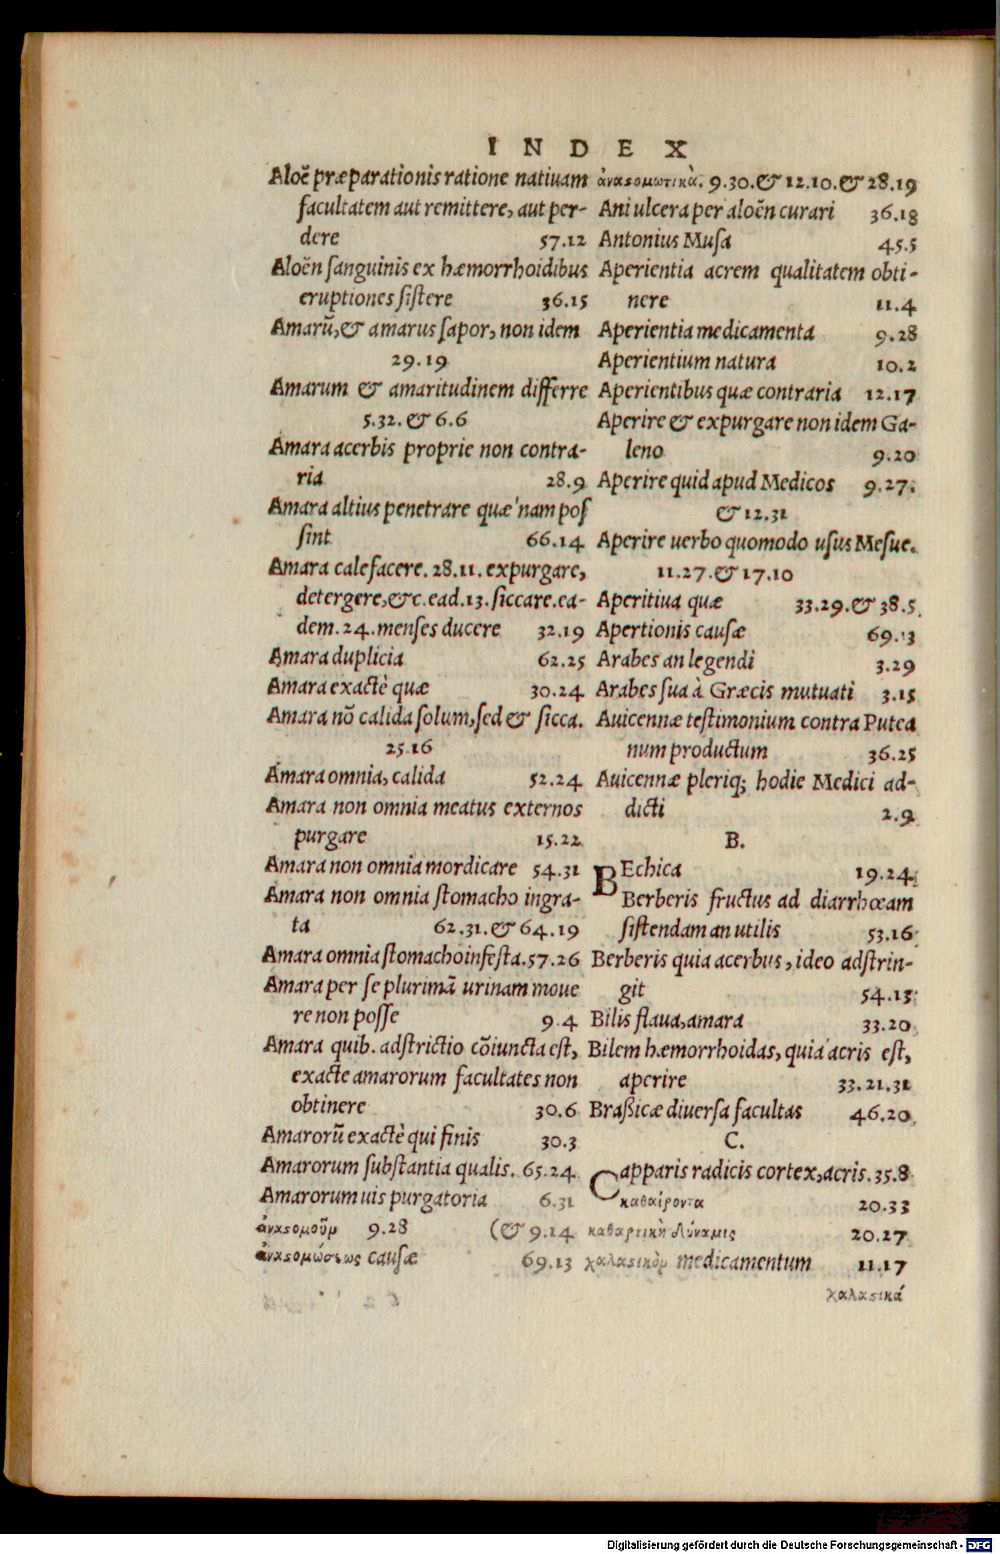 INDEX
Aloë præparationis ratione natiuam
facultatem aut remittere, aut per-
dere 57.12
Aloën sanguinis ex hæmorrhoidibus
eruptiones sistere 36.15
Amarū, & amarus sapor, non idem
29.19
Amarum & amaritudinem differre
5.32. & 6.6
Amara acerbis proprie non contra-
ria 28.9
Amara altius penetrare quæ nam pos
sint 66.14
Amara calefacere. 28.11. expurgare,
detergere, &c. ead. 13. siccare. ea-
dem. 24. menses ducere 32.19
Amara duplicia 62.25
Amara exactè quæ 30.24
Amara nō calida solum, sed & sicca.
25.16
Amara omnia, calida 52.24
Amara non omnia meatus externos
purgare 15.22
Amara non omnia mordicare 54.31
Amara non omnia stomacho ingra-
ta 62.31. & 64.19
Amara omnia stomacho infesta. 57.26
Amara per se plurimā urinam moue
re non posse 9.4
Amara quib. adstrictio cōiuncta est,
exacte amarorum facultates non
obtinere 30.6
Amarorū exactè qui finis 30.3
Amarorum substantia qualis. 65.24
Amarorum uis purgatoria 6.31
ἀναϛομοῦν 9.28 (& 9.14
ἀναϛομώσεως causæ 69.13
ἀναϛομωτικὰ. 9.30. & 12.10. & 28.19
Ani ulcera per aloën curari 36.18
Antonius Musa 45.5
Aperientia acrem qualitatem obti-
nere 11.4
Aperientia medicamenta 9.28
Aperientium natura 10.2
Aperientibus quæ contraria 12.17
Aperire & expurgare non idem Ga-
leno 9.20
Aperire quid apud Medicos 9.27.
& 12.31
Aperire uerbo quomodo usus Mesue.
11.27. & 17.10
Aperitiua quæ 33.29. & 38.5
Apertionis causæ 69.13
Arabes an legendi 3.29
Arabes sua à Græcis mutuati 3.15
Auicennæ testimonium contra Putea
num productum 36.25
Auicennæ pleriq; hodie Medici ad-
dicti 2.9
B.
BEchica 19.24
Berberis fructus ad diarrhœam
sistendam an utilis 53.16
Berberis quia acerbus, ideo adstrin-
git 54.13
Bilis flaua, amara 33.20
Bilem hæmorrhoidas, quia acris est,
aperire 33.21.31
Braßicæ diuersa facultas 46.20
C.
Capparis radicis cortex, acris. 35.8
καθαίροντα 20.33
καθαρτικὴ δύναμις 20.27
χαλαϛικὸν medicamentum 11.17
χαλαϛικά
Digitalisierung gefördert durch die Deutsche Forschungsgemeinschaft - DFG